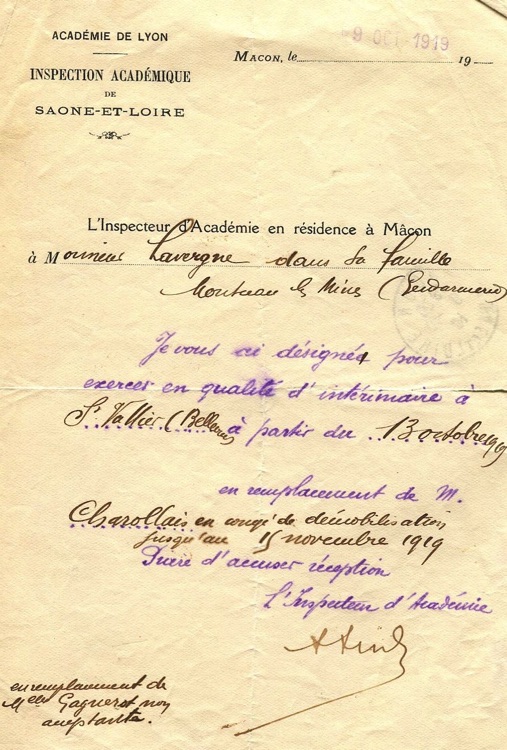 ACADÉMIE DE LYON
INSPECTION ACADÉMIQUE
DE
SAONE-ET-LOIRE
MACON, le 9 OCT 1919 19
L'Inspecteur d'Académie en résidence à Mâcon
à Monsieur Lavergne dans sa famille
Montceau les Mines (Gendarmerie)
Je vous ai désigné pour
exercer en qualité d'intérimaire à
St Vallier (Bellevue) à partir du 13 octobre 1919
en remplacement de M.
Charollais en congé de démobilisation
jusqu'au 15 novembre 1919
Prière d'accuser réception
L'Inspecteur d'Académie
en remplacement de
Melle Gagneret non
acceptante.